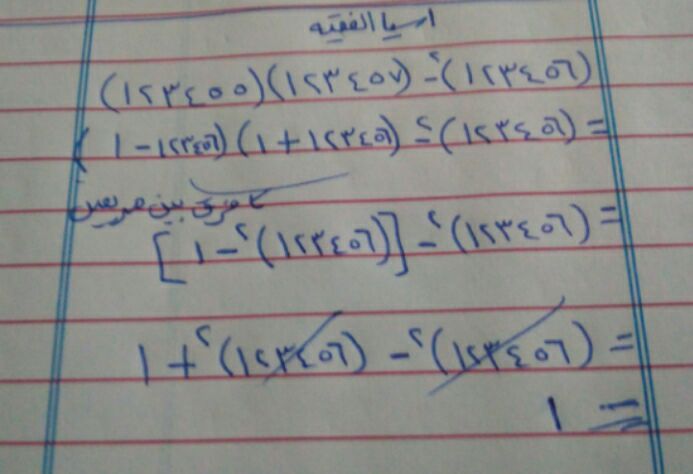 اسيا الفقيه
(١٢٣٤٥٦)٢ - (١٢٣٤٥٧)(١٢٣٤٥٥)
= (١٢٣٤٥٦)٢ - (١٢٣٤٥٦ + ١)(١٢٣٤٥٦ - ١)
كفرق بين مربعين
= (١٢٣٤٥٦)٢ - [(١٢٣٤٥٦)٢ - ١]
= (١٢٣٤٥٦)٢ - (١٢٣٤٥٦)٢ + ١
= ١